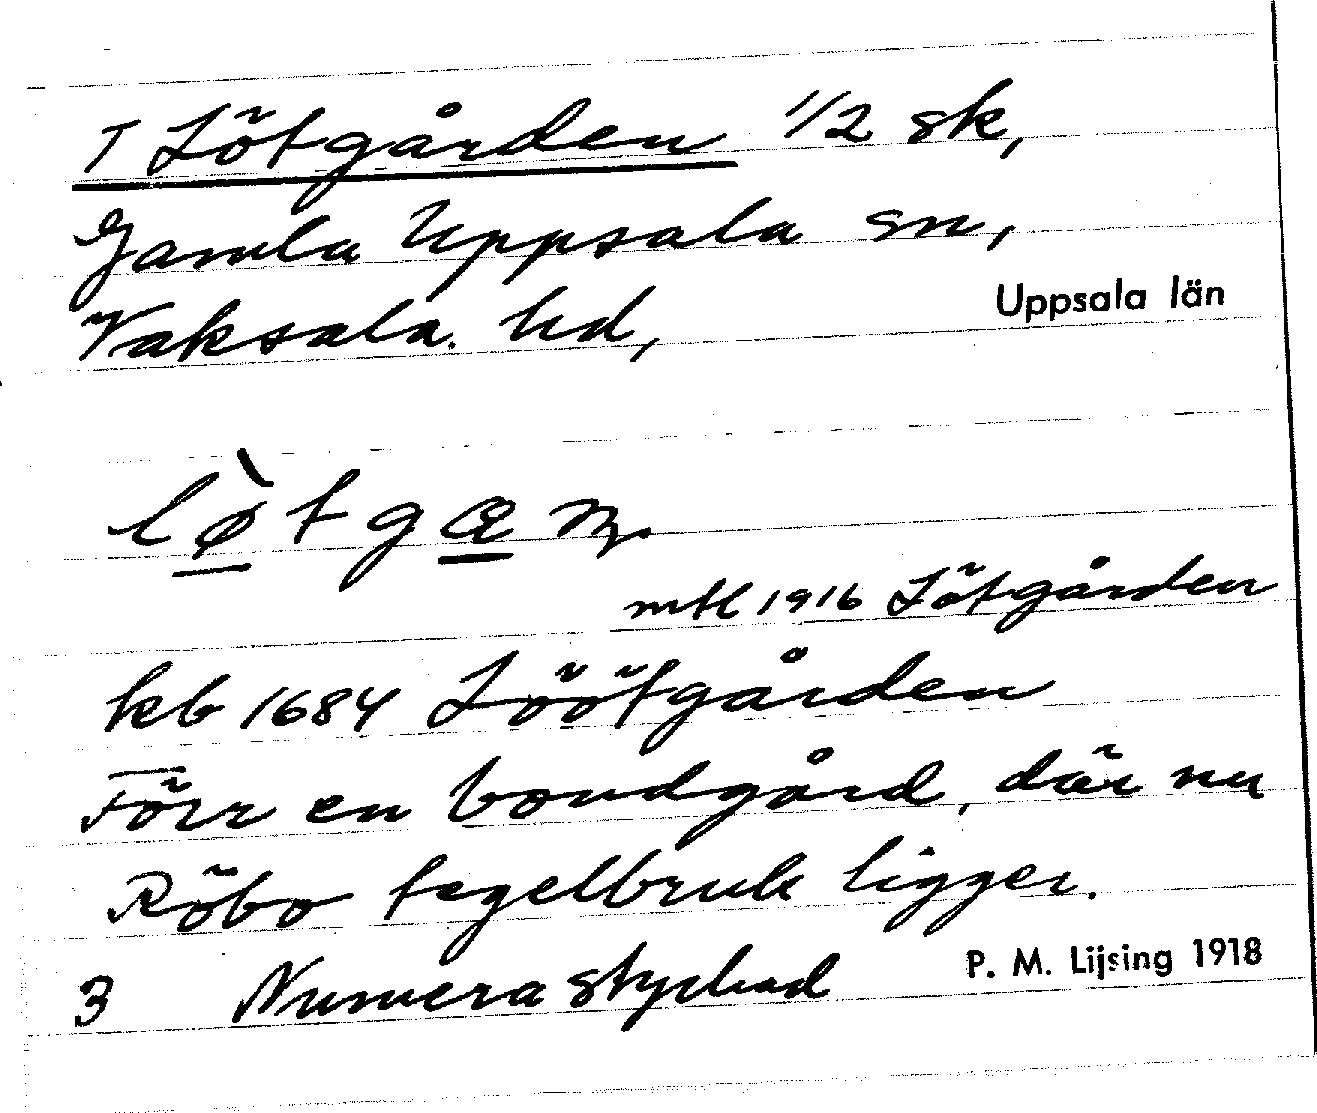 T Lötgården 1/2 sk,
Gamla Uppsala sn,
Vaksala. hd, Uppsala län
lø̀tgɑn.
mtl 1916 Lötgården
kb 1684 Löötgården
Förr en bondgård, där nu
Röbo tegelbruk ligger.
3 Numera styckad P. M. Lijsing 1918